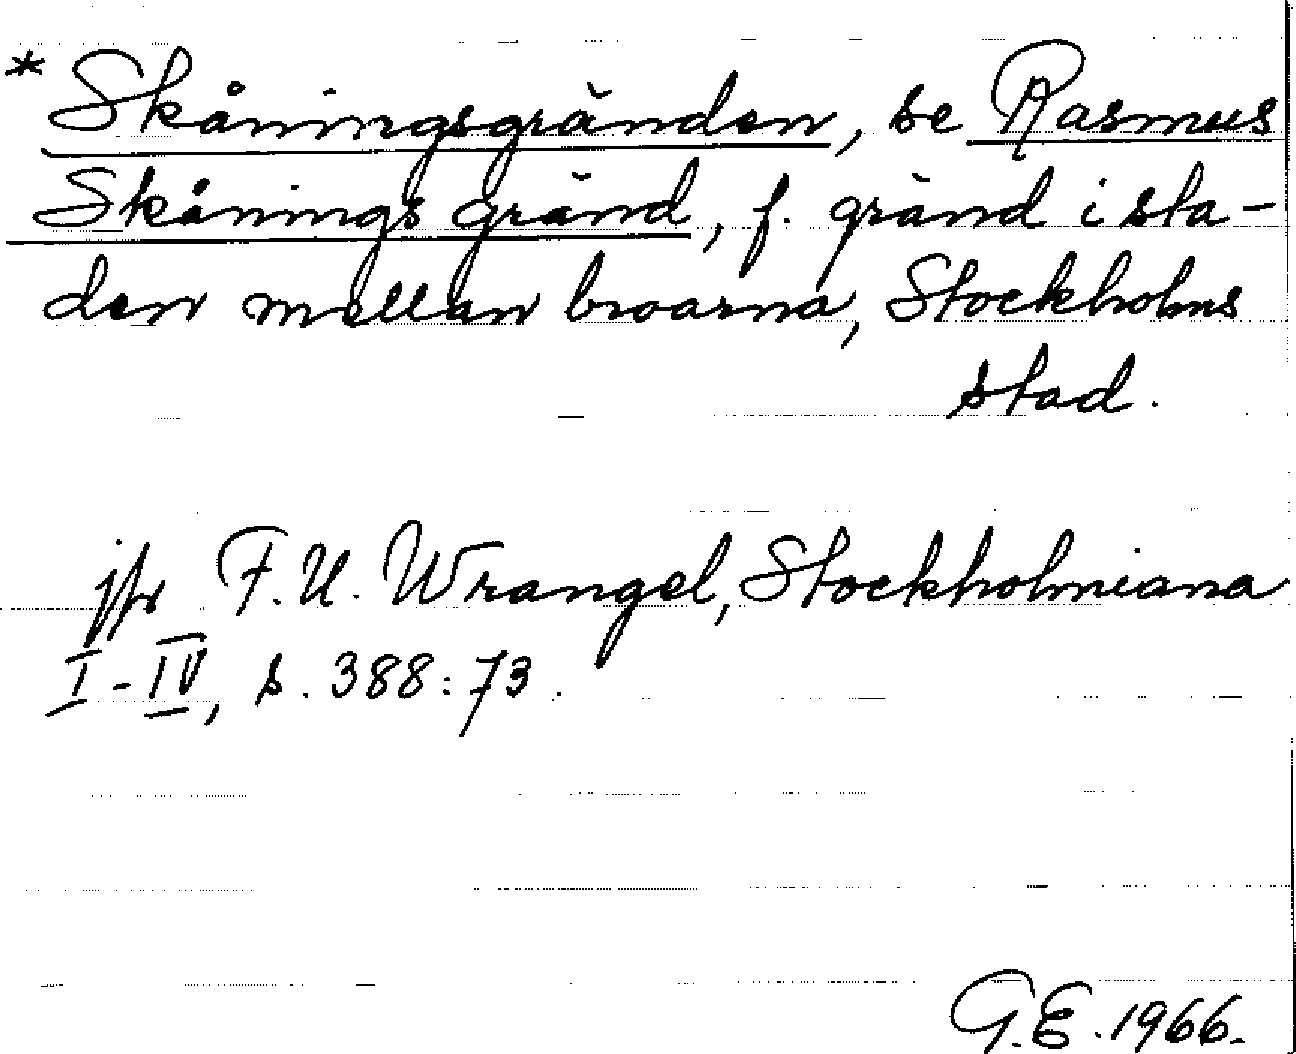 * Skåningsgränden, se Rasmus
Skånings gränd, f. gränd i sta-
den mellan broarna, Stockholms
stad.
jfr F.U. Wrangel, Stockholmiana
I-IV, s. 388:73.
G.E. 1966.